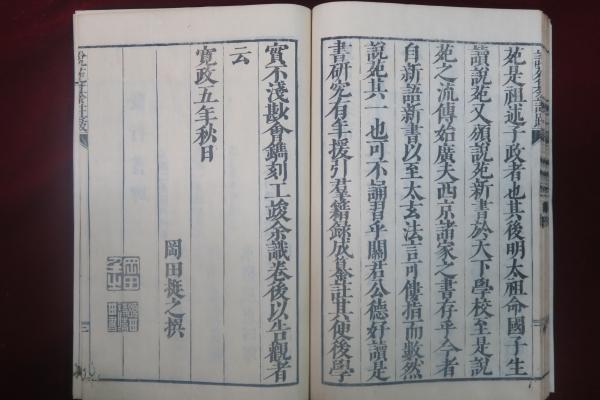 苑是祖述子政者也其後明太祖命國子生
讀說苑又頒說苑新書於天下學校至是說
苑之流傳始廣夫西京諸家之書存乎今者
自新語新書以至太玄法言可僂指而數然
說苑其一也可不誦習乎關君公德好讀是
書研究有年援引羣籍錄成纂註其便後學
實不淺尠會鐫刻工竣余識卷後以告觀者
云
寬政五年秋日
岡田挺之撰